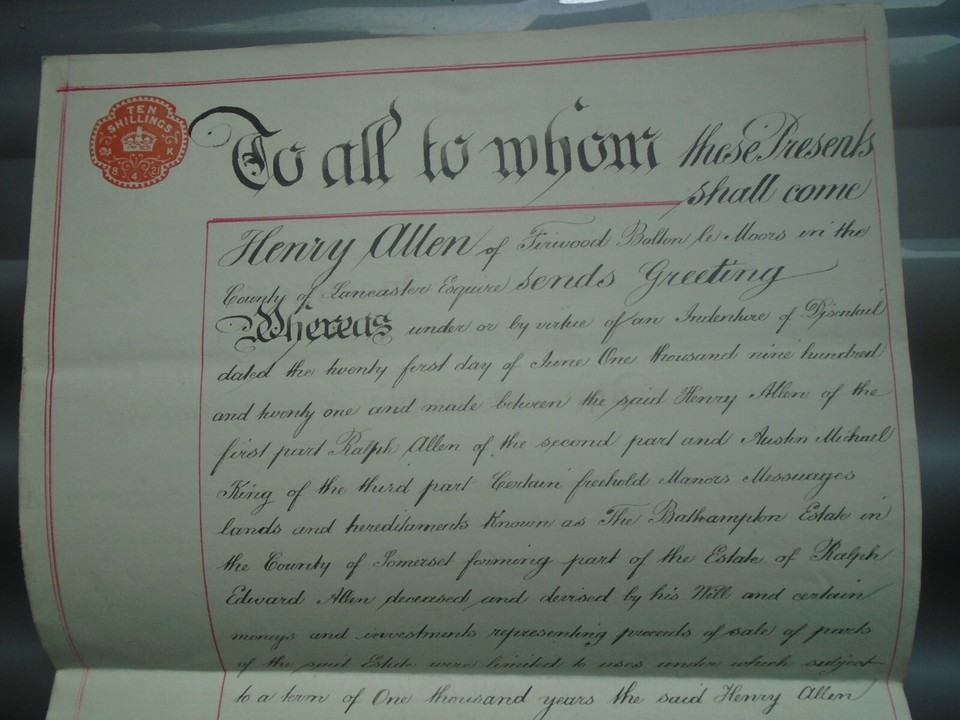 TEN
SHILLINGS
2 K
8 4 21
To all to whom these Presents
shall come
Henry Allen of Firwood Bolton le Moors in the
County of Lancaster Esquire sends Greeting
Whereas under or by virtue of an Indenture of Disentail
dated the twenty first day of June One thousand nine hundred
and twenty one and made between the said Henry Allen of the
first part Ralph Allen of the second part and Austin Michael
King of the third part Certain freehold Manors Messuages
lands and hereditaments Known as The Bathampton Estate in
the County of Somerset forming part of the Estate of Ralph
Edward Allen deceased and devised by his Will and certain
moneys and investments representing proceeds of sale of parts
of the said Estate were limited to uses under which subject
to a term of One thousand years the said Henry Allen